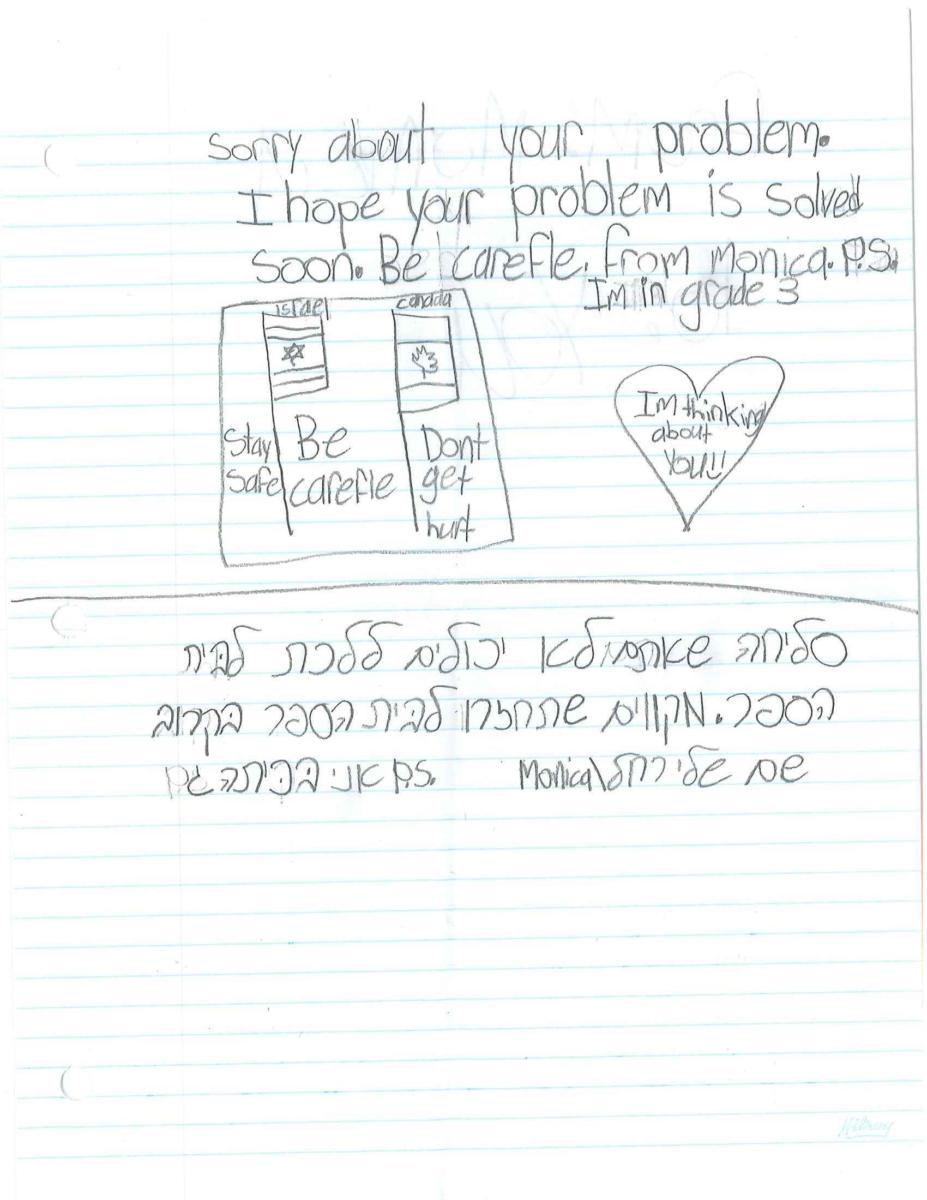 Sorry about your problem.
I hope your problem is solved
soon. Be carefle. from monica. P.S.
Im in grade 3
israel
canada
Stay
Safe
Be
carefle
Dont
get
hurt
Im thinking
about
You!!
סליחה שאתם לא יכולים ללכת לבית
הספר. מקווים שתחזרו לבית הספר בקרוב
שם שלי רחל\Monica
P.S. אני בכיתה ג